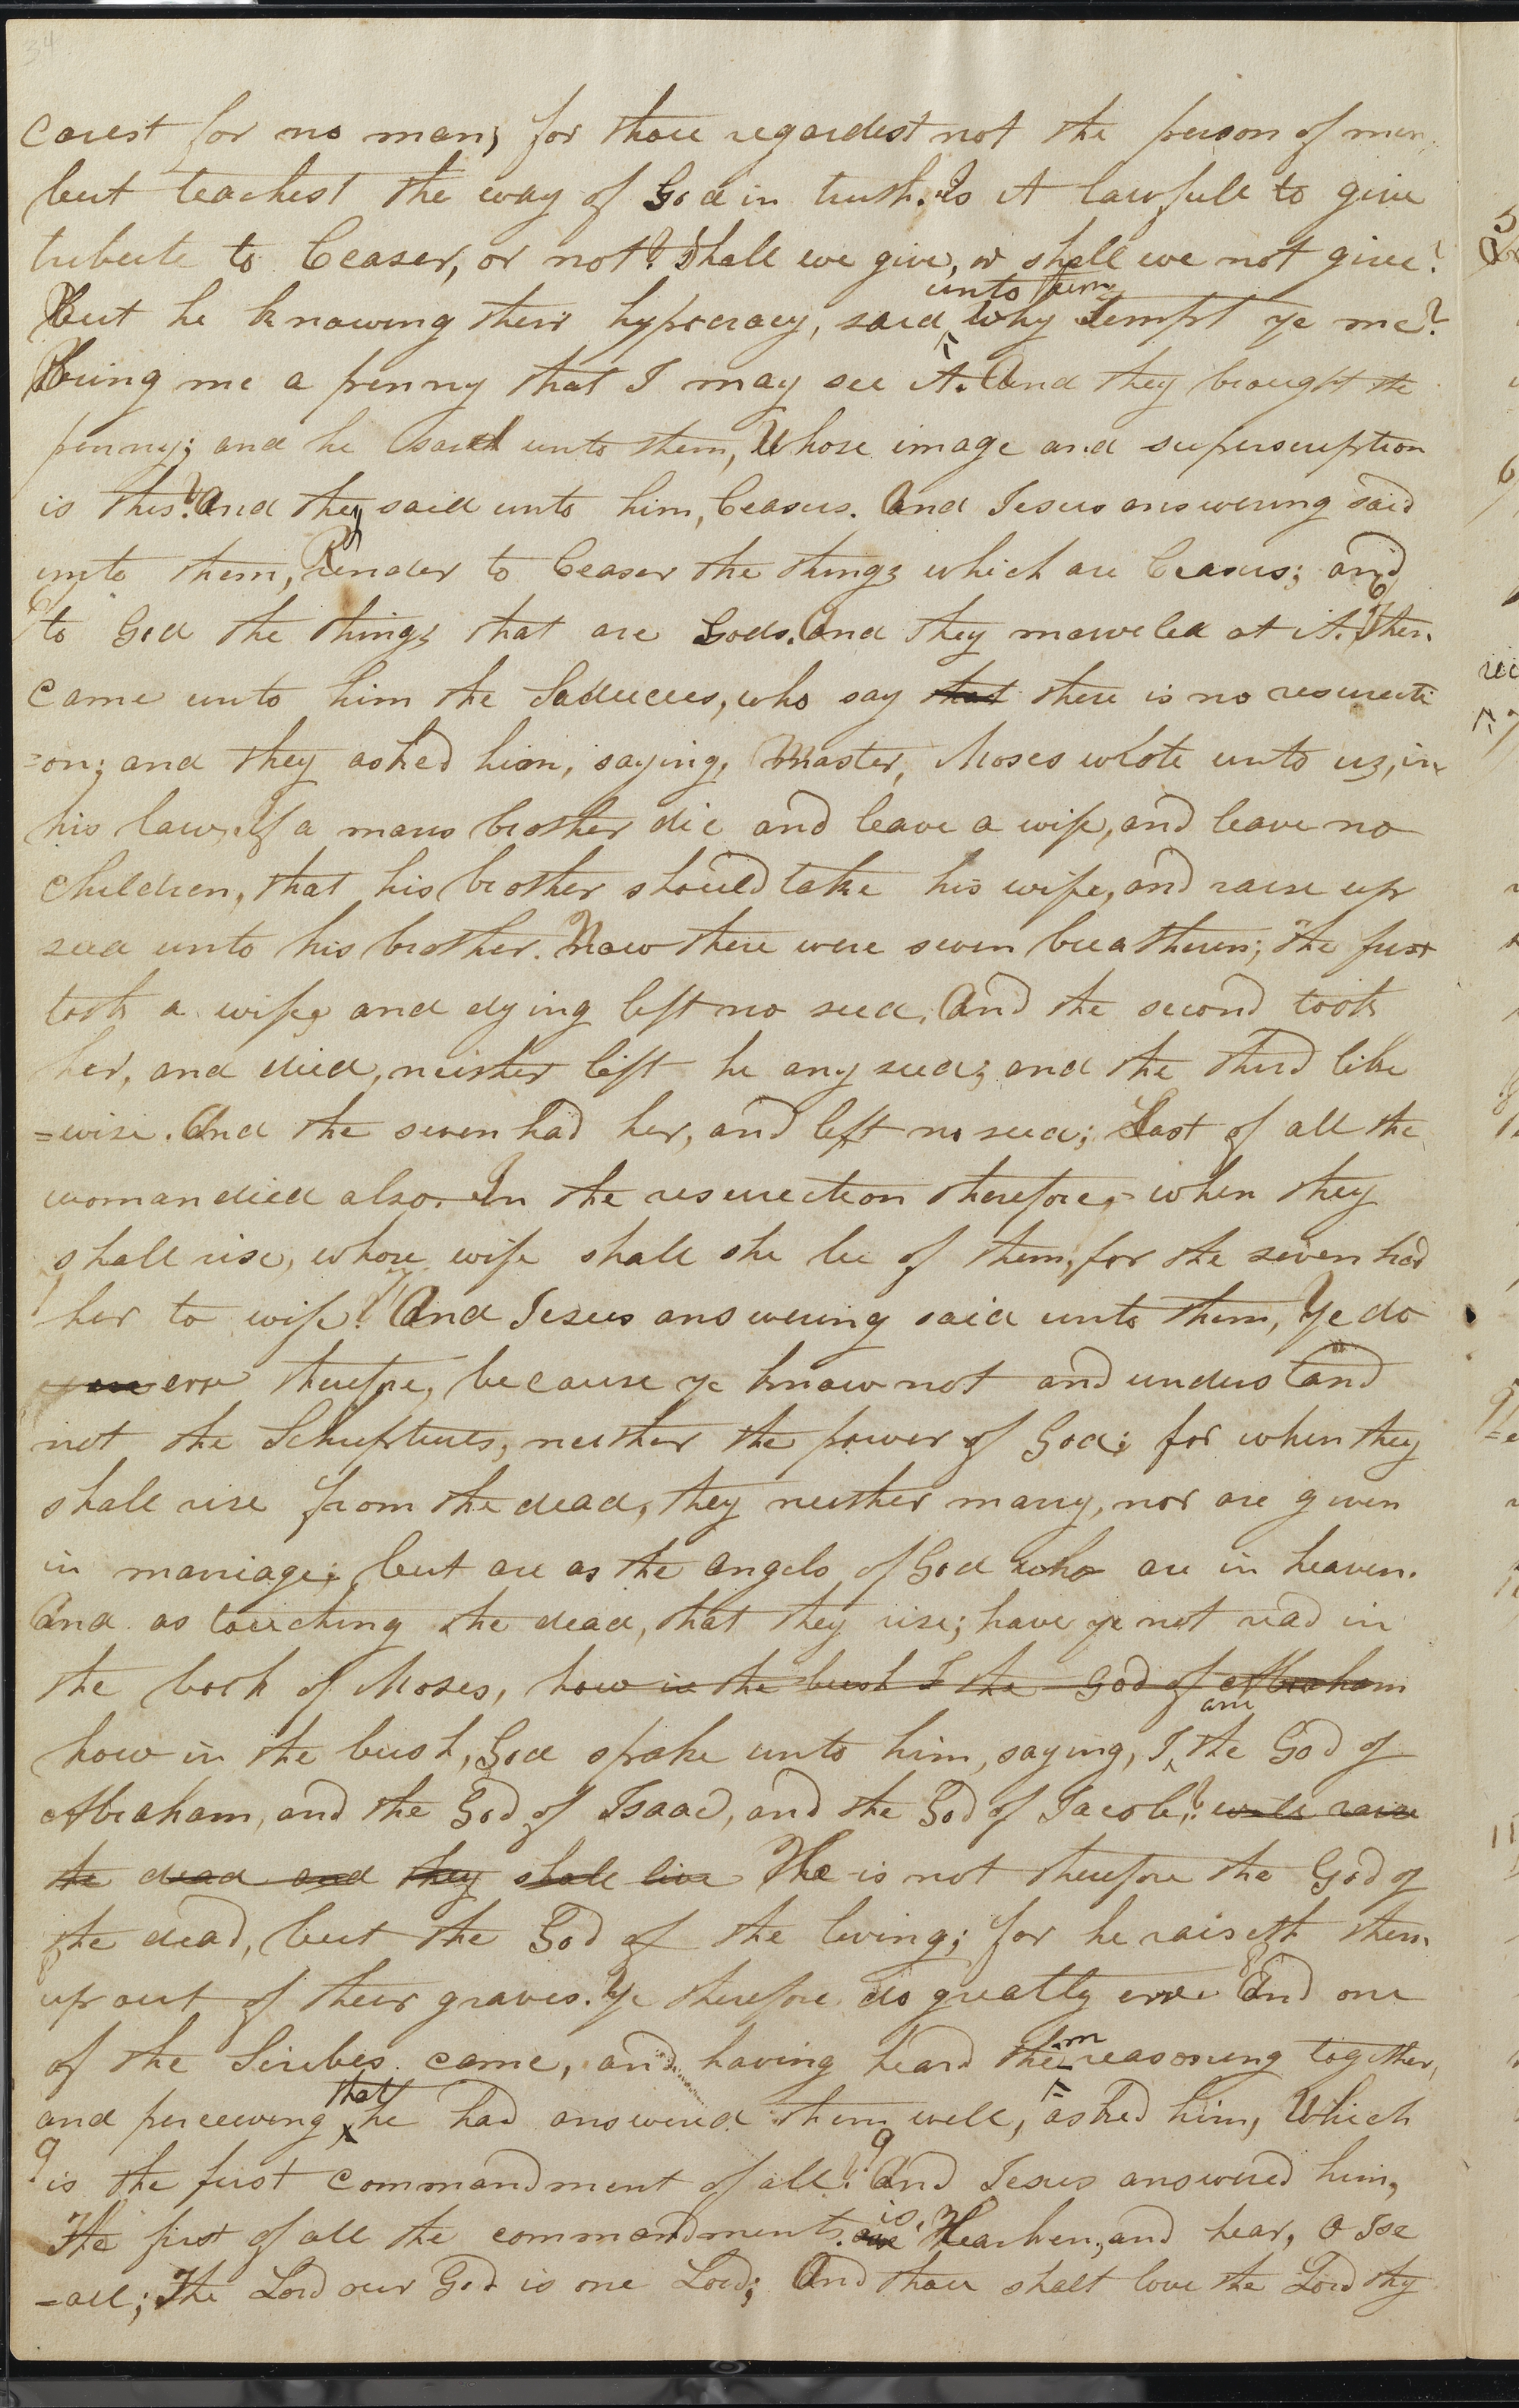 34
carest for no man, for thou regardest not the person of men,
but teachest the way of God in truth. Is it lawfull to give
tribute to Ceaser, or not? Shall we give, or shall we not give?
unto them
But he knowing their hypocracy, said, Why tempt ye me?
Bring me a penny that I may see it. And they brought the
penny; and he said unto them, Whose image and superscription
is this? And they said unto him, Ceasers. And Jesus answering said
unto them, Render to Ceaser the things which are Ceasers; and
6
to God the things that are Gods. And they marveled at it. Then
came unto him the Saducees, who say that there is no resurecti
=on; and they asked him, saying, Master, Moses wrote unto us, in
his law, If a mans brother die and leave a wife, and leave no
children, that his brother should take his wife, and raise up
seed unto his brother. Now there were seven breatheren; the first
took a wife, and dying left no seed. And the second took
her, and died, neither left he any seed; and the third like
=wise. And the seven had her, and left no seed; Last of all the
woman died also. In the resurection therefore, when they
shall rise, whose wife shall she be of them, for the seven had
7
her to wife? And Jesus answering said unto them, Ye do
err therefore, because ye know not and understand
not the Schriptures, neither the power of God; for when they
shall rise from the dead, they neither marry, nor are given
in marriage; but are as the angels of God who are in heaven.
And as touching the dead, that they rise; have ye not read in
the book of Moses, how in the bush I the God of Abraham
am
how in the bush, God spake unto him, saying, I the God of
Abraham, and the God of Isaac, and the God of Jacob? will raise
the dead and they shall live He is not therefore the God of
the dead, but the God of the living; for he raiseth them
8
up out of their graves. Ye therefore do greatly err. And one
of the Scribes came, and having heard them reasoning together,
that
and perceiving he had answered them well, asked him, Which
9
is the first commandment of all? And Jesus answered him,
is,
The first of all the commandments are Hearken, and hear, O Isr
=ael; The Lord our God is one Lord; And thou shalt love the Lord thy